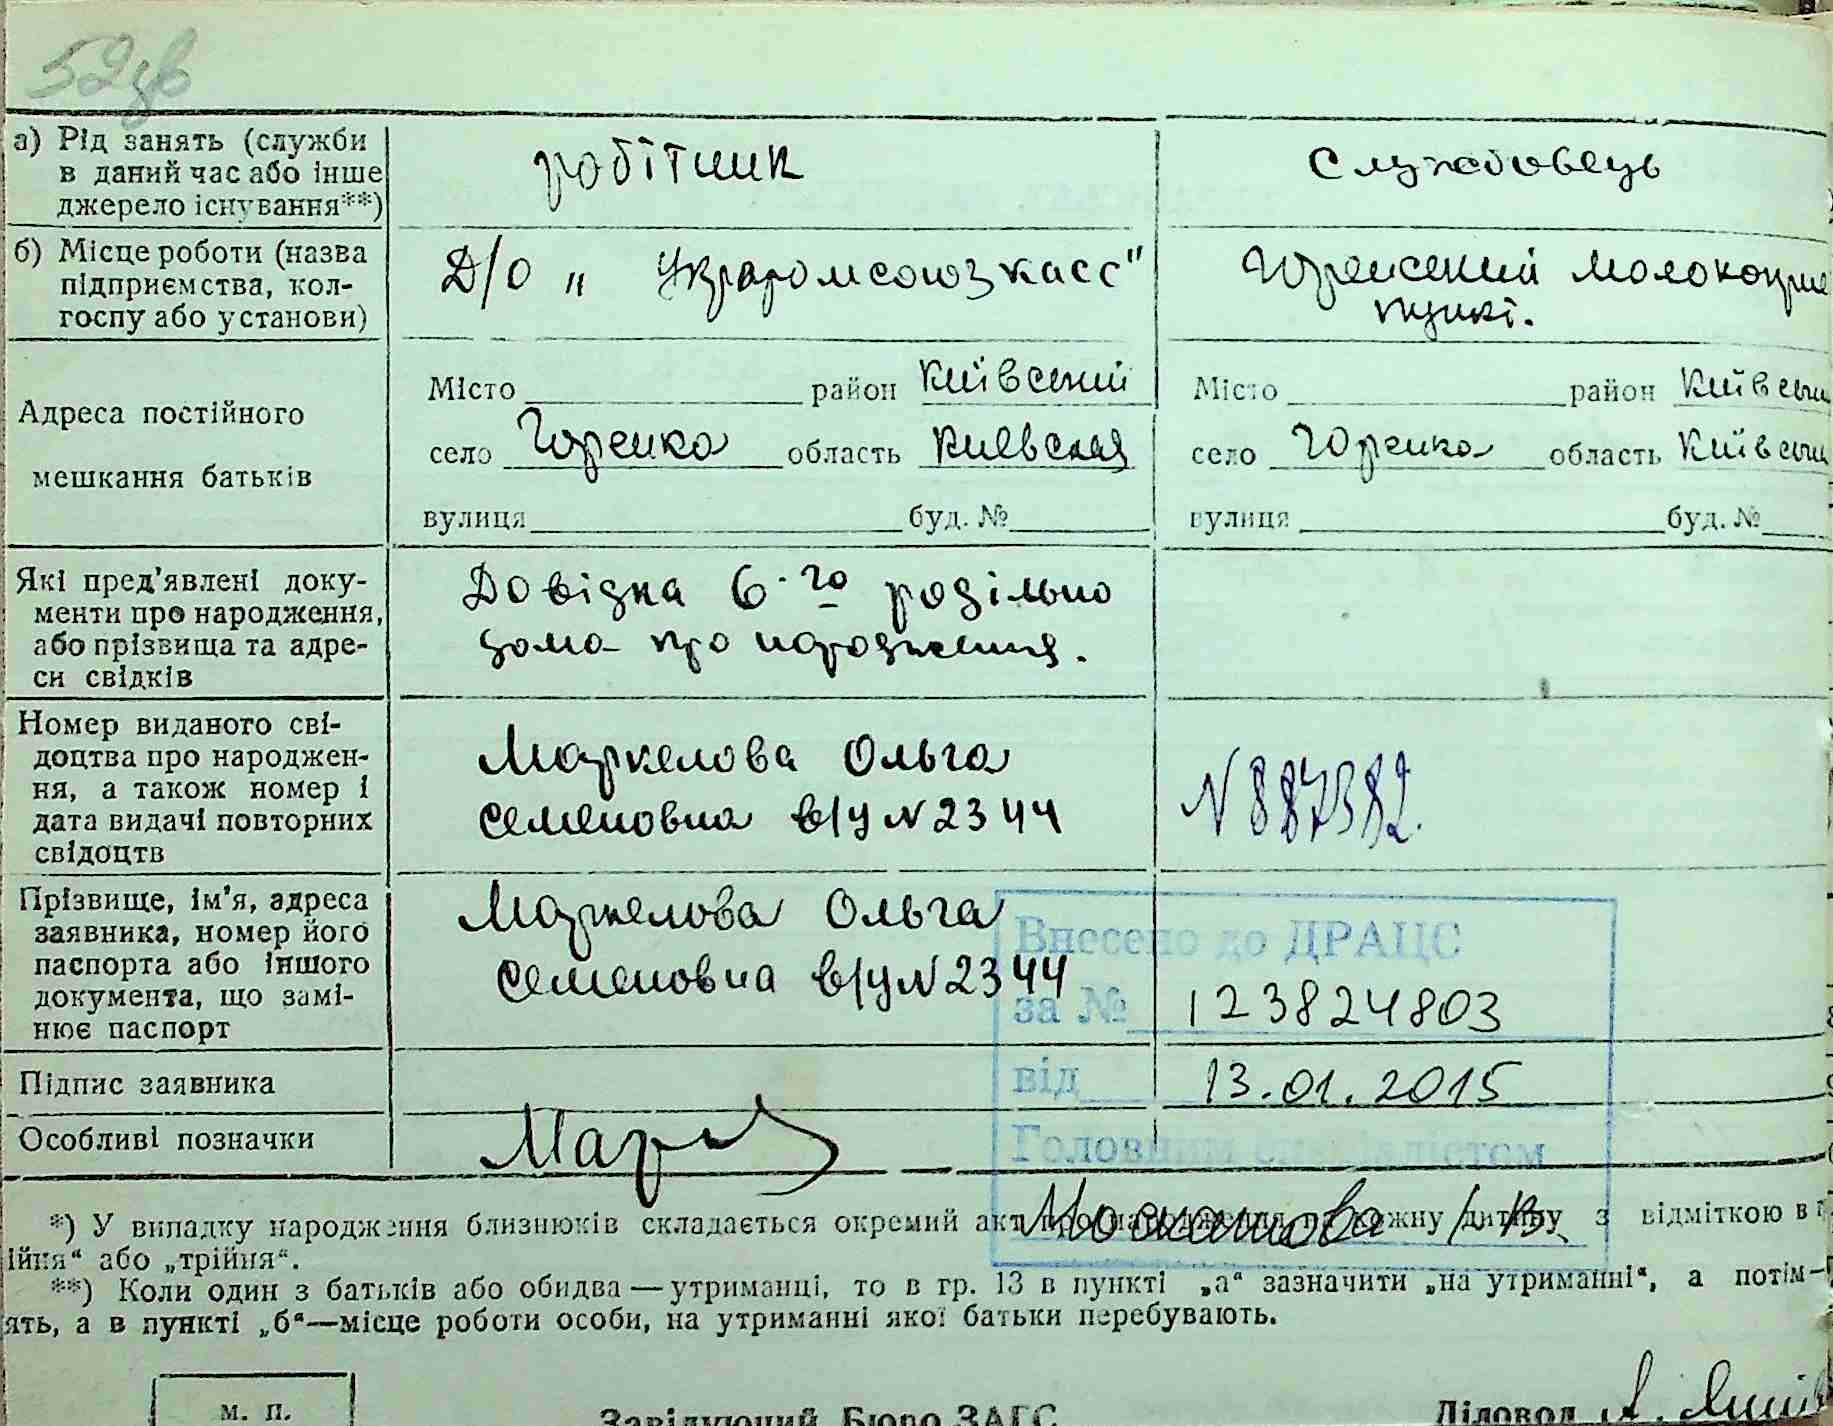 52
а) Рід занять (служби
в даний час або інше
джерело існування**)
робітник
Службовець
б) Місце роботи (назва
підприємства, кол-
госпу або установи)
Д/О „ Укрпромсоюзкасс"
Горенський молокоприє
пункт.
Адреса постійного
мешкання батьків
Місто район Київський
село Горенка область Киевская
вулиця буд. №
Місто район Київськи
село Горенка область Київськи
вулиця буд. №
Які пред’явлені доку-
менти про народження,
або прізвища та адре-
си свідків
Довідка 6-го родільно
дома про народження.
Номер виданого сві-
доцтва про народжен-
ня, а також номер і
дата видачі повторних
свідоцтв
Маркелова Ольга
Семеновна в/у N 2344
N 887382.
Прізвище, ім’я, адреса
заявника, номер його
паспорта або іншого
документа, що замі-
нює паспорт
Маркелова Ольга
Семеновна в/у N 2344
Внесено до ДРАЦС
за № 123824803
від 13.01.2015
Головним спеціалістом
Підпис заявника
Особливі позначки
*) У випадку народження близнюків складається окремий акт про народження на кожну дитину з відміткою в
ійня“ або „трійня“.
**) Коли один з батьків або обидва — утриманці, то в гр. 13 в пункті „а“ зазначити „на утриманні“, а потім—
ять, а в пункті „б“—місце роботи особи, на утриманні якої батьки перебувають.
м. п.
Завідуючий Бюро ЗАГС
Діловод